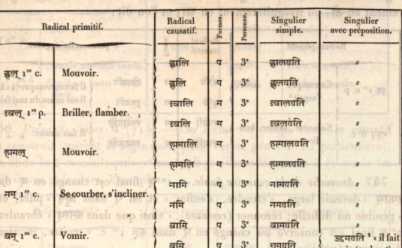 Radical primitif.
Radical causatif.
Personne.
Singulier simple.
Singulier avec préposition.
ह्वालि प 3ᵉ ह्वालयति "
ह्वल् 1ʳᵉ c. Mouvoir.
ह्वलि प 3ᵉ ह्वलयति "
ज्वालि 3ᵉ ज्वालयति "
ज्वल् 1ʳᵉ p. Briller, flamber.
ज्वलि प 3ᵉ ज्वलयति "
ह्मालि प 3ᵉ ह्मालयति "
ह्मल् Mouvoir.
ह्मलि 3ᵉ ह्मलयति "
नामि प 3ᵉ नामयति "
नम् 1ʳᵉ c. Se courber, s'incliner.
नमि प 3ᵉ नमयति "
वामि प 3ᵉ वामयति "
वम् 1ʳᵉ c. Vomir.
वमि प 3ᵉ वमयति उद्वमयति ¹ · il fait